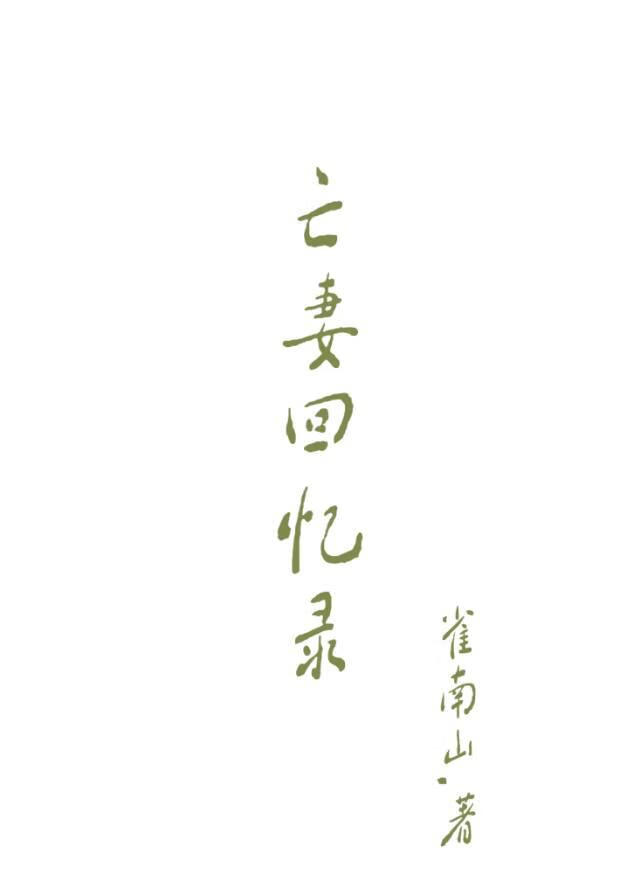 亡妻回忆录
雀南山·著